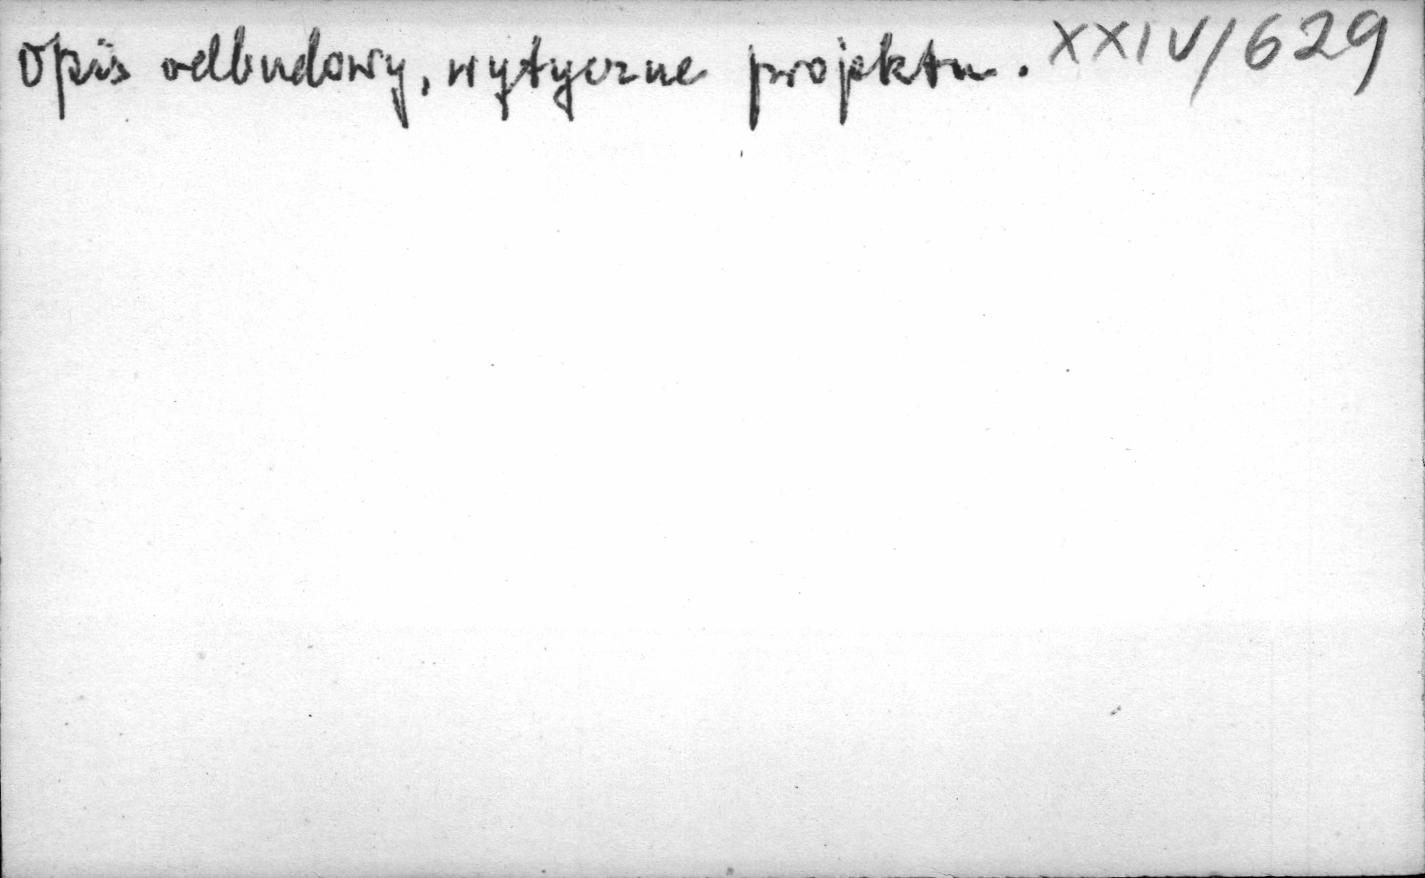 Opis odbudowy, wytyczne projektu. XXIV/629